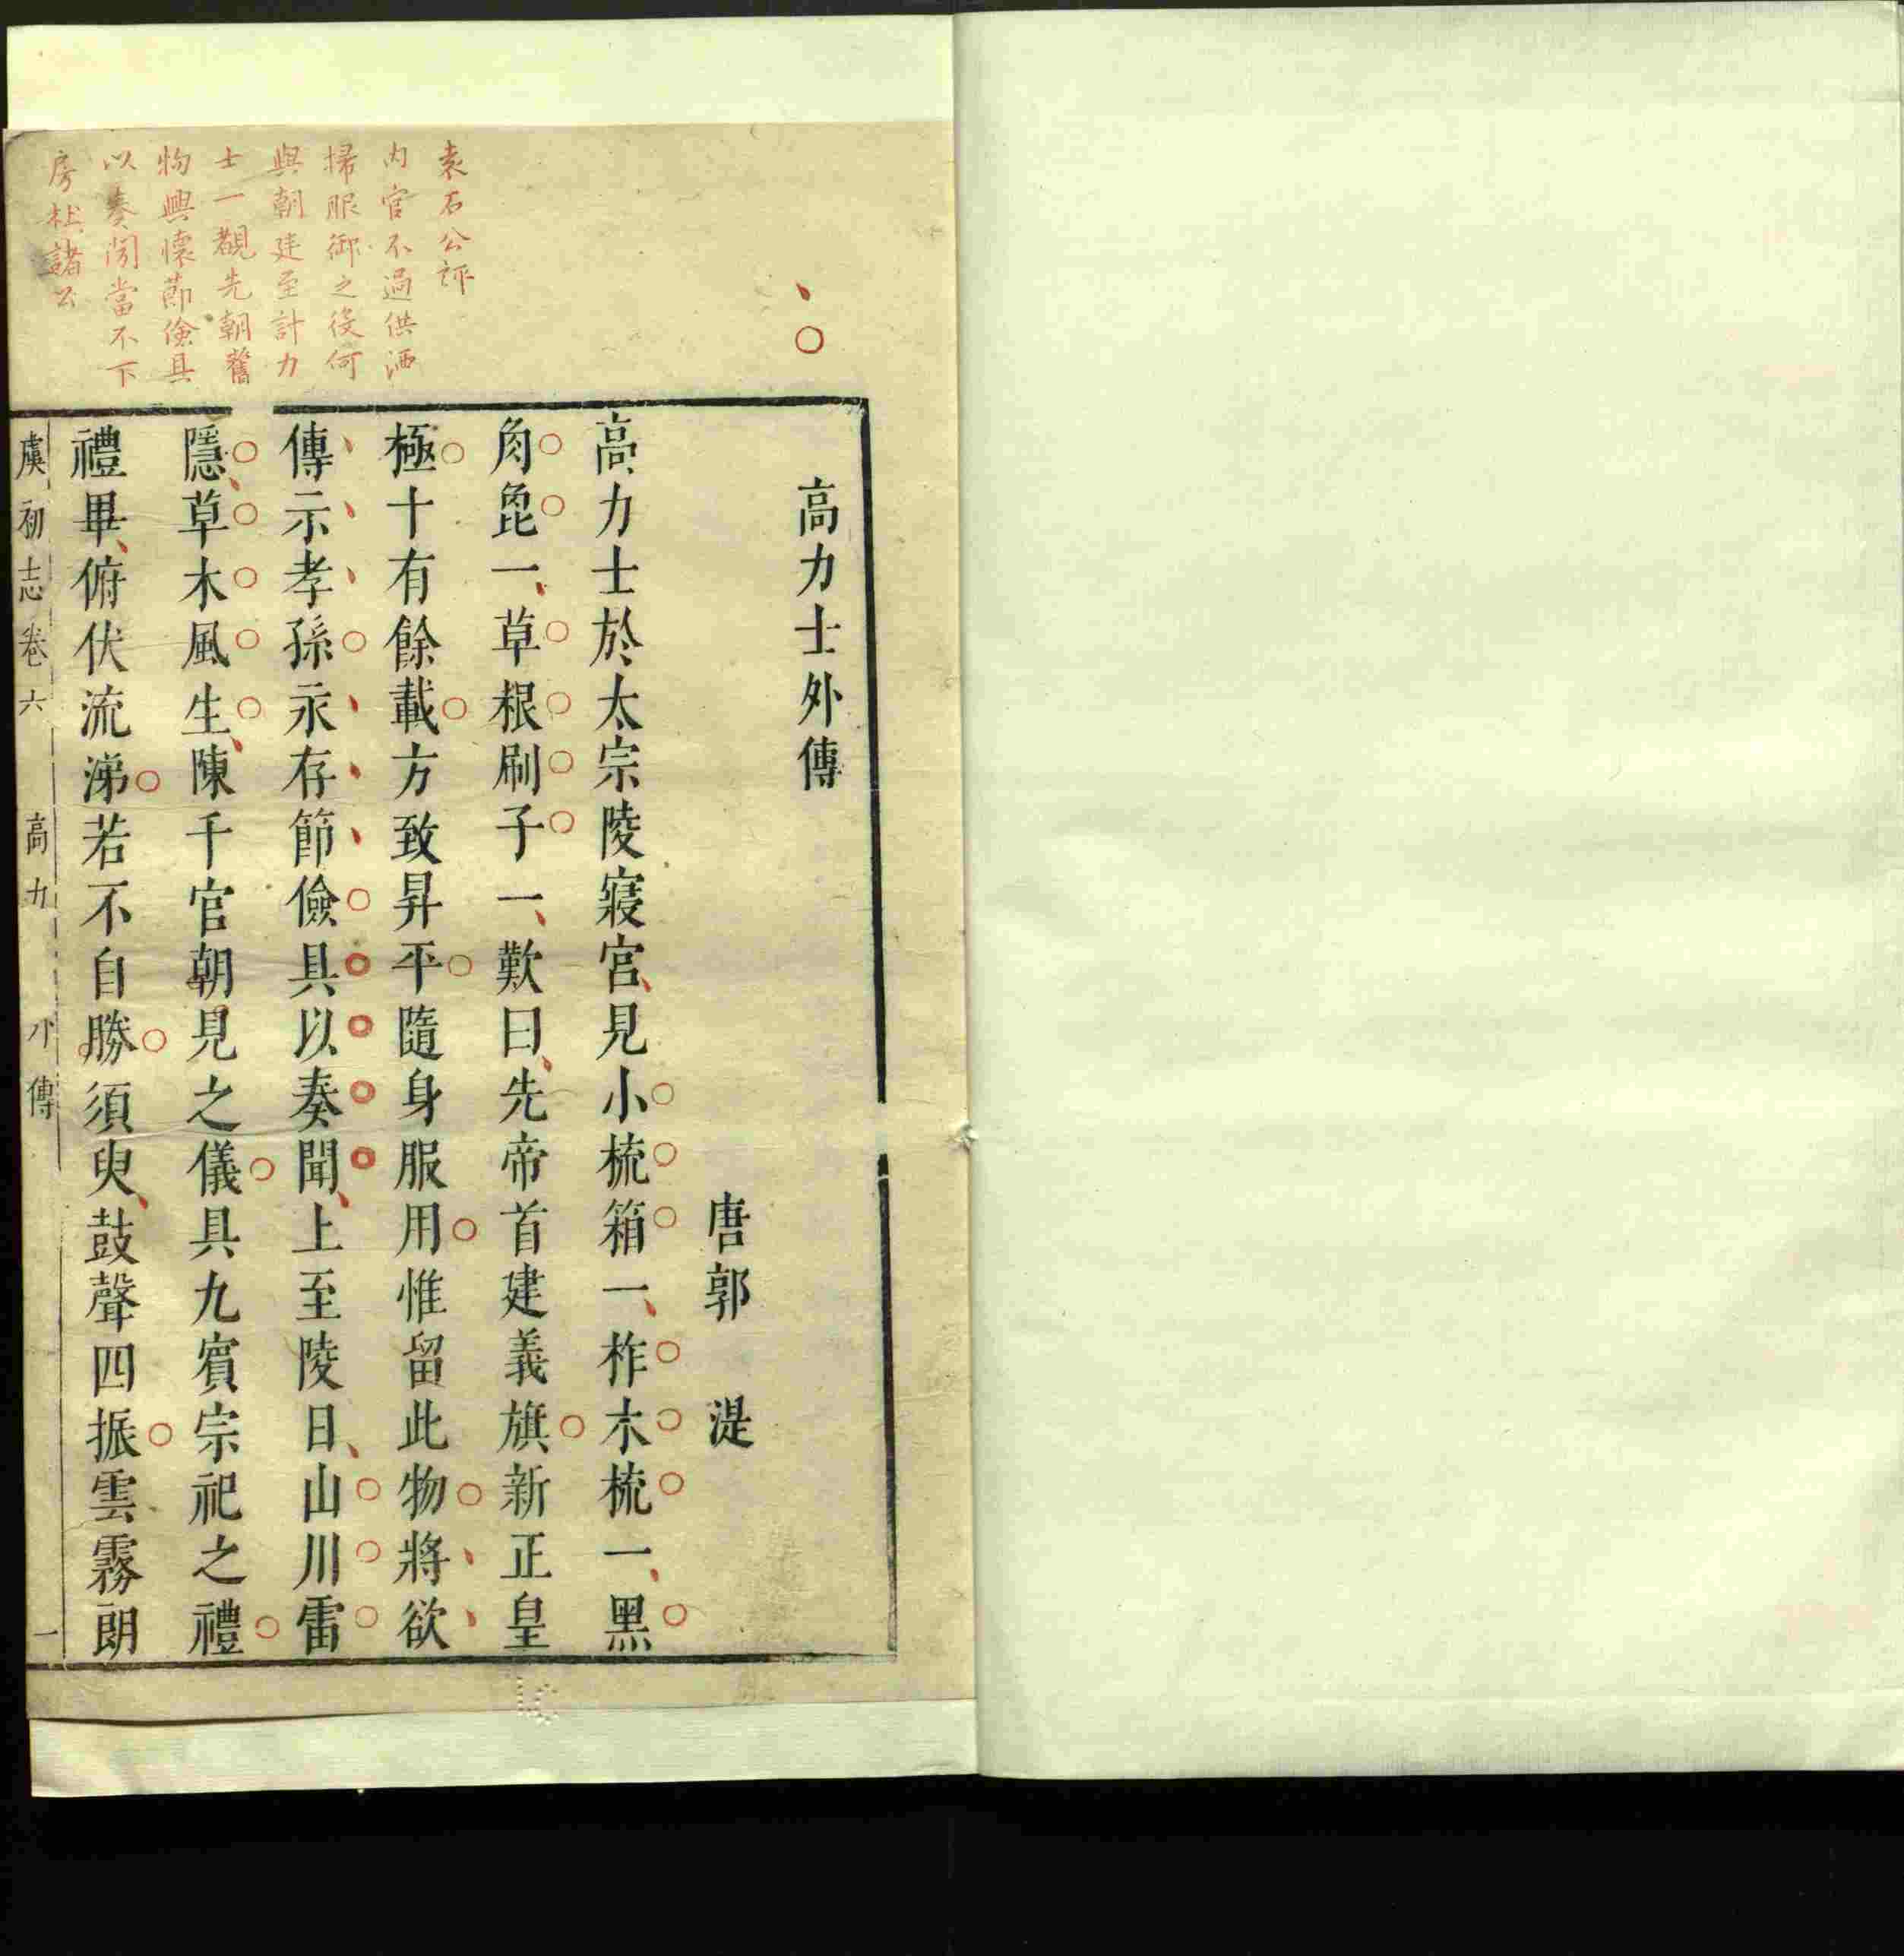 高力士外傳
唐郭湜
高力士於太宗陵寢宮見小梳箱一柞木梳一黑
角篦一草根刷子一歎曰先帝首建義旗新正皇
極十有餘載方致昇平隨身服用惟留此物將欲
傳示孝孫永存節儉具以奏聞上至陵日山川雷
隱草木風生陳千官朝見之儀具九賓宗祀之禮
禮畢俯伏流涕若不自勝須臾鼓聲四振雲霧朗
袁石公評
內官不過供洒
掃服御之役何
與朝廷至計力
士一覩先朝舊
物興懷節儉具
以奏聞當不下
房杜諸公
虞初志卷六 高力 外傳 一